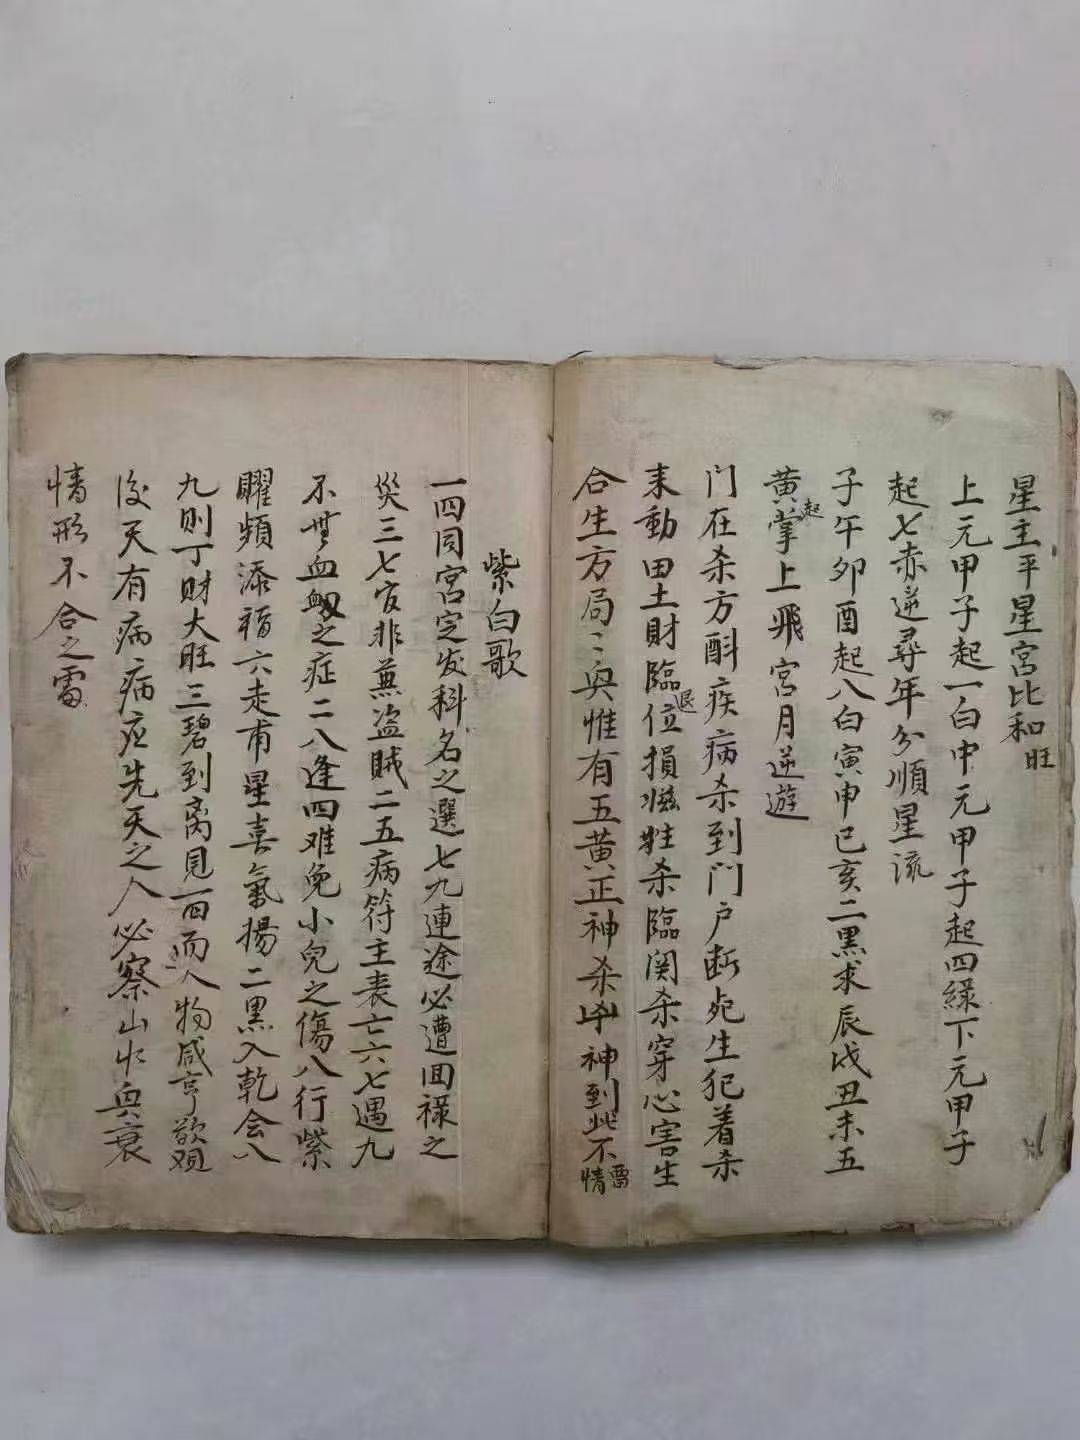 星主平星宮比和旺
上元甲子起一白中元甲子起四綠下元甲子
起七赤逆尋年分順星流
子午卯酉起八白寅申巳亥二黑求辰戌丑未五
黃起掌上飛宮月逆遊
门在杀方酙疾病杀到门户断死生犯着杀
来動田土財臨退位損滋牲杀臨関杀穿心害生
合生方局〻興惟有五黃正神杀凶神到此不
雷情
紫白歌
一四同宮定发科名之選七九連途必遭囬祿之
災三七官非兼盜賊二五病符主丧亡六七遇九
不無血衂之症二八逢四难免小兒之傷八行紫
曜頻添福六走甫星喜氣揚二黑入乾会八
九則丁財大旺三碧到离見一四而人物咸亨欲观
後天有病病应先天之人必察山水興衰
情形不合之雷